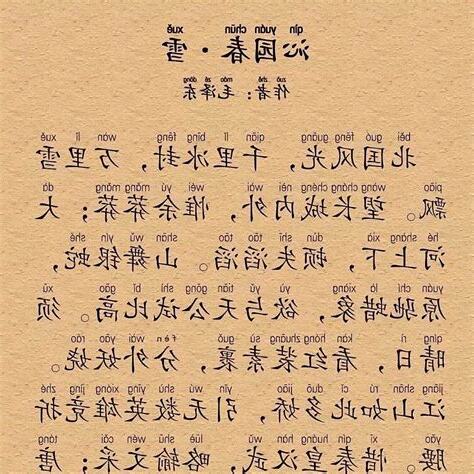 qìn yuán chūn xuě
沁园春·雪
zuò zhě máo zé dōng
作者：毛泽东
běi guó fēng guāng qiān lǐ bīng fēng wàn lǐ xuě
北国风光，千里冰封，万里雪
piāo wàng cháng chéng nèi wài wéi yú mǎng mǎng dà
飘。望长城内外，惟余莽莽；大
hé shàng xià dùn shī tāo tāo shān wǔ yín shé
河上下，顿失滔滔。山舞银蛇，
yuán chí là xiàng yù yǔ tiān gōng shì bǐ gāo xū
原驰蜡象，欲与天公试比高。须
qíng rì kàn hóng zhuāng sù guǒ fèn wài yāo ráo
晴日，看红装素裹，分外妖娆。
jiāng shān rú cǐ duō jiāo yǐn wú shù yīng xióng jìng zhé
江山如此多娇，引无数英雄竞折
yāo xī qín huáng hàn wǔ lüè shū wén cǎi táng
腰。惜秦皇汉武，略输文采；唐